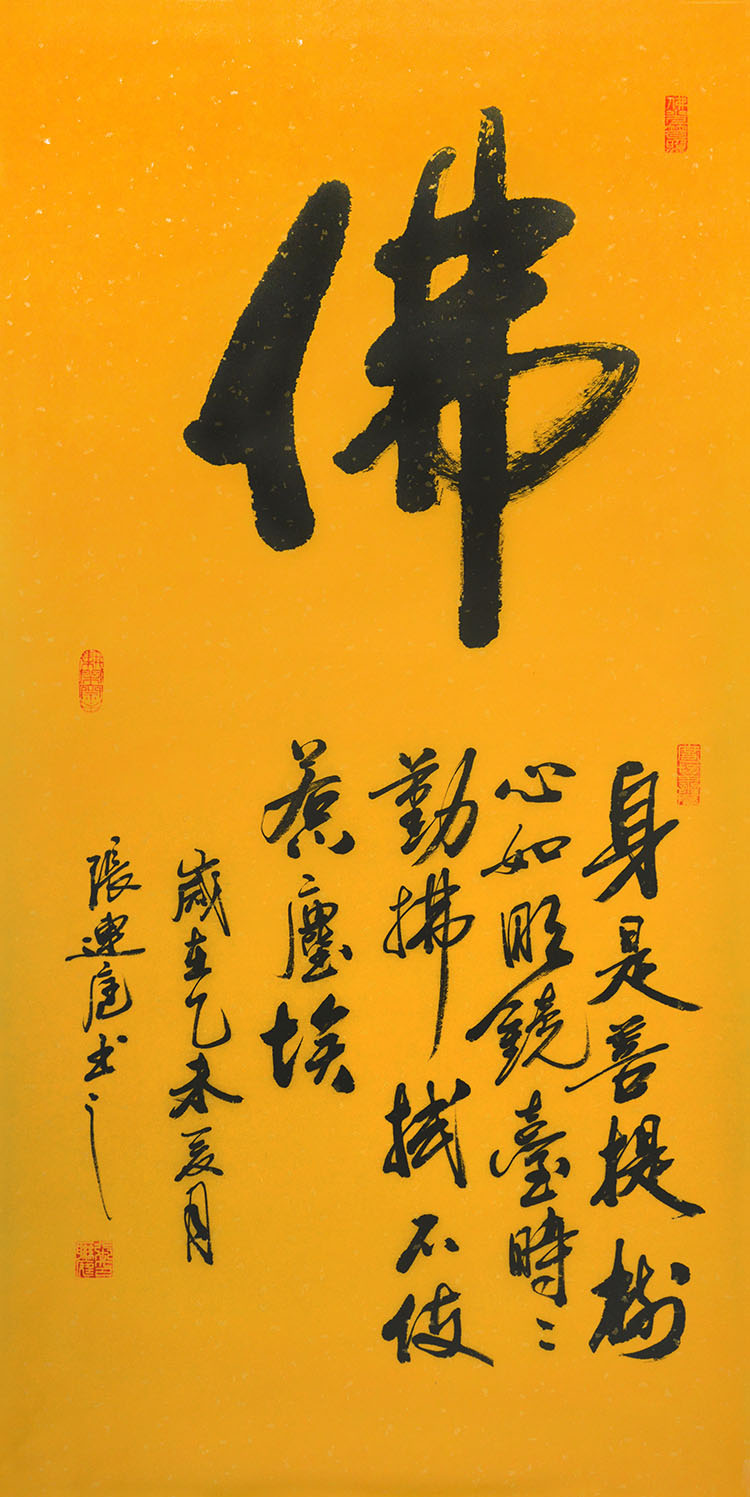 佛
身是菩提樹
心如明鏡臺時〻
勤拂拭不使
惹塵埃
歲在乙未夏月
張連庭書之